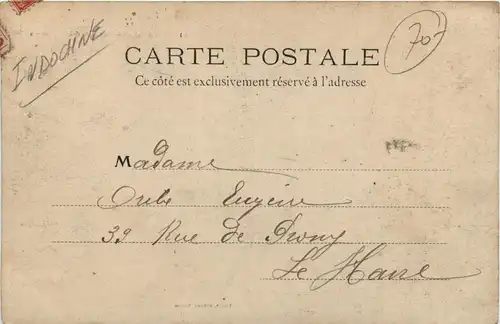 INDOCHINE
707
CARTE POSTALE
Ce côté est exclusivement réservé à l'adresse
Madame
Eugène
39 Rue de
Le Havre